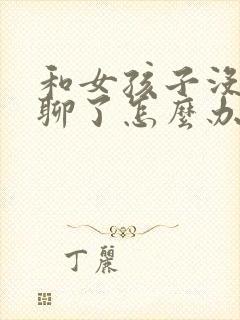 和女孩子没
聊了怎麼办
丁麗